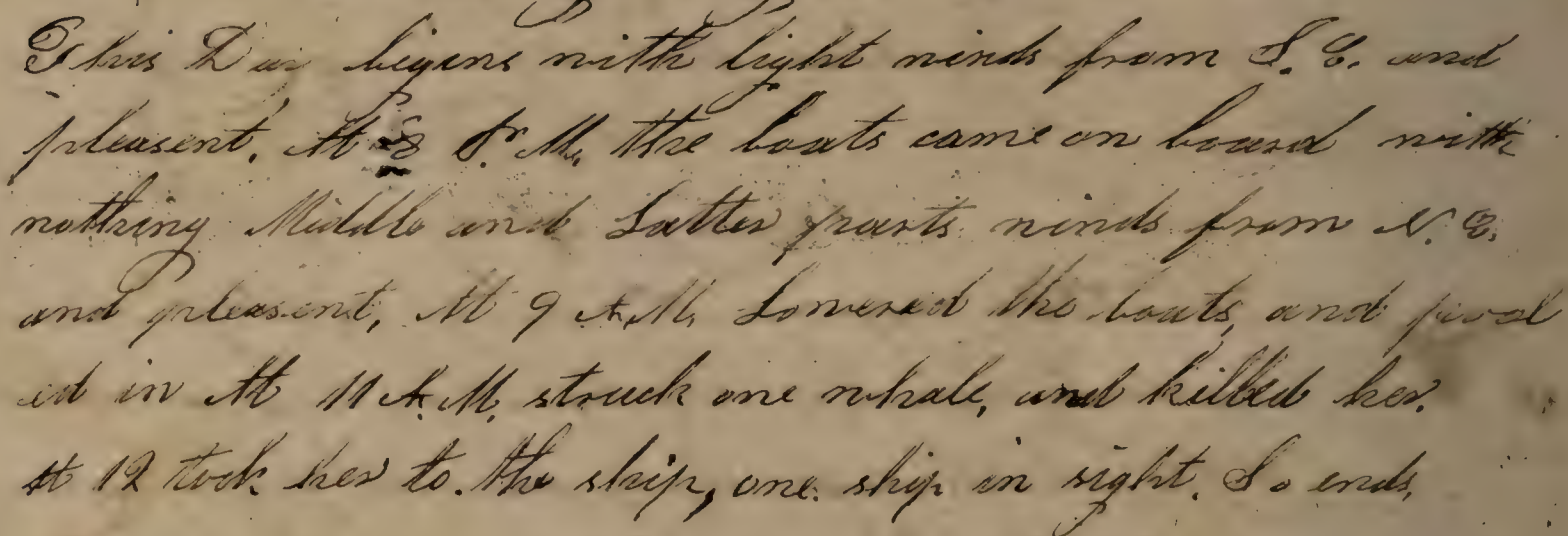 This Day begins with light winds from S. E. and
pleasent, At 8 P. M. the boats came on board with
nothing Middle and Latter parts winds from N. E.
and pleasent, At 9 A. M. Lowered the boats, and
ed in At 11 A. M. struck one whale, and killed her.
At 12 took her to the ship, one ship in sight. So ends,